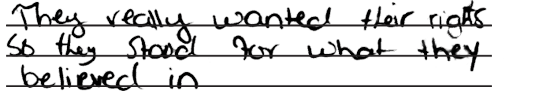 They really wanted their rights
So they stood for what they
believed in